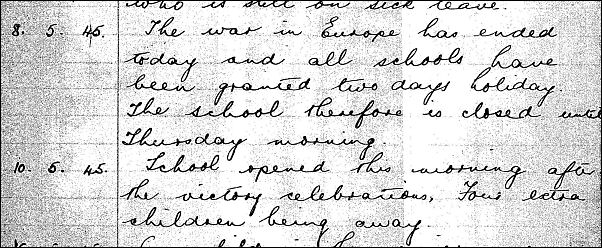 who is still on sick leave.
8. 5. 45. The war in Europe has ended
today and all schools have
been granted two days holiday.
The school therefore is closed until
Thursday morning.
10. 5. 45. School opened this morning after
the victory celebrations, Four extra
children being away.